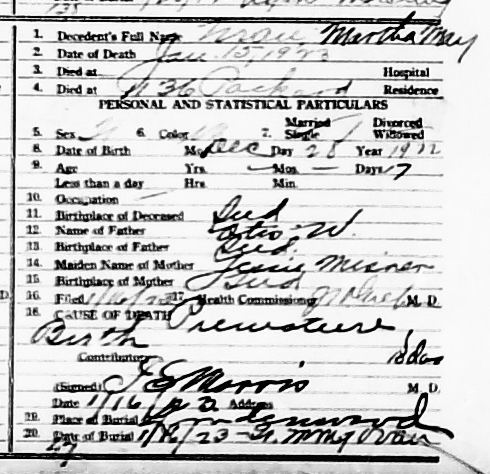 1. Decedent's Full Name Martha May
2. Date of Death Jan. 15, 1923
3. Died at Hospital
4. Died at 1136 Packard Residence
PERSONAL AND STATISTICAL PARTICULARS
5. Sex 6. Color 7. Married Single Divorced Widowed
8. Date of Birth Mo. Dec Day 28 Year 1922
9. Age Yrs. — Mos. — Days 7
Less than a day Hrs. Min.
10. Occupation —
11. Birthplace of Deceased Ind
12. Name of Father Otis W.
13. Birthplace of Father Ind.
14. Maiden Name of Mother Jessie Misner
15. Birthplace of Mother Ind
16. Filed 17. Health Commissioner M. D.
18. CAUSE OF DEATH Premature
Birth
Contributory
(Signed) J E Morris M. D.
Date 1/16/23 Address
19. Place of Burial Lindenwood
20. Date of Burial 1/16/23